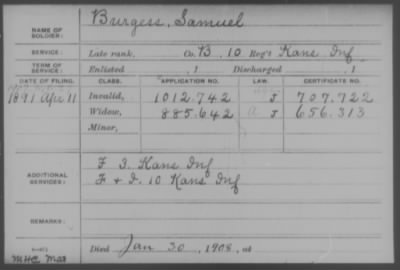 NAME OF SOLDIER: Burgess, Samuel
SERVICE: Late rank, Co. B, 10 Reg't Kans Inf
TERM OF SERVICE: Enlisted , 1 Discharged , 1
DATE OF FILING. CLASS. APPLICATION NO. LAW. CERTIFICATE NO.
Invalid, 1012.742 J 707.722
1891 Apr 11 Widow, 885.642 J 656.313
Minor,
ADDITIONAL SERVICES: F 3. Kans Inf
F & I. 10 Kans Inf
REMARKS:
Died Jan 30, 1908, at